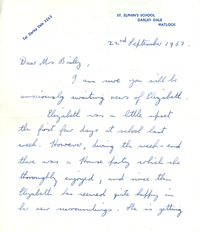 Tel. Darley Dale 2263
ST. ELPHIN'S SCHOOL
DARLEY DALE
MATLOCK
22nd September 1967.
Dear Mrs
I am sure you will be
anxiously awaiting news of Elizabeth.
Elizabeth was a little upset
the first few days at school last
week. However, during the week-end
there was a House party which she
thoroughly enjoyed, and since then
Elizabeth has seemed quite happy in
her new surroundings. She is getting